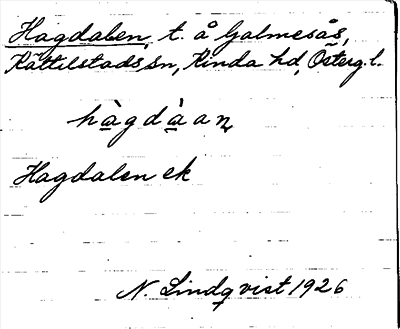 Hagdalen, t. å Galmesås,
Kättilstads sn, Kinda hd, Österg. l.
hàgdàan
Hagdalen ek
N Lindqvist 1926